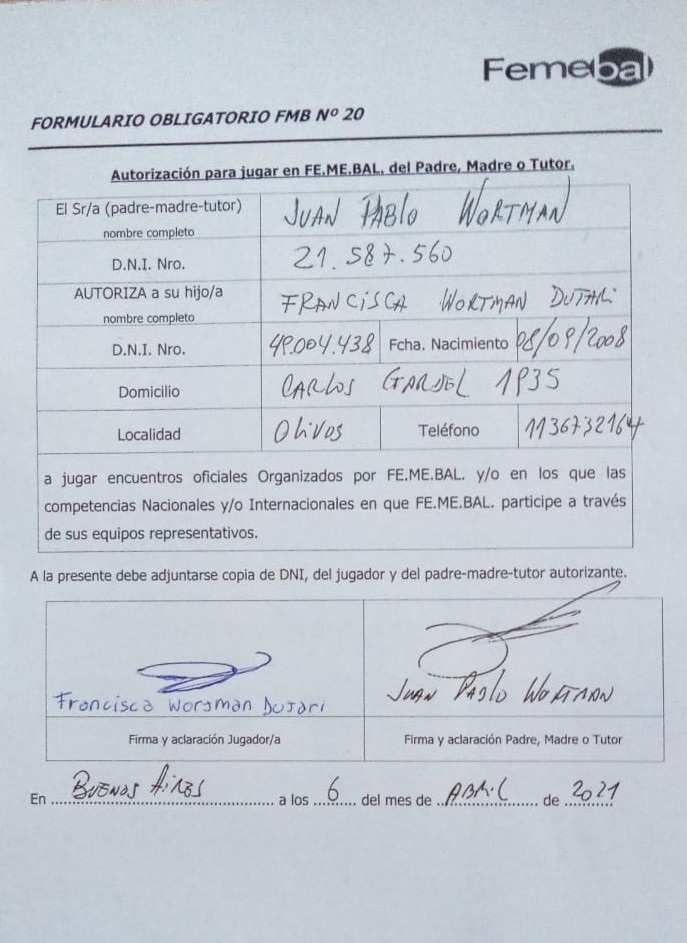 Femebal
FORMULARIO OBLIGATORIO FMB Nº 20
Autorización para jugar en FE.ME.BAL. del Padre, Madre o Tutor.
El Sr/a (padre-madre-tutor) JUAN PABLO WORTMAN
nombre completo
D.N.I. Nro. 21.587.560
AUTORIZA a su hijo/a FRANCISCA WORTMAN DUTARI
nombre completo
D.N.I. Nro. 49.004.438 Fcha. Nacimiento 08/09/2008
Domicilio CARLOS GARDEL 1935
Localidad Olivos Teléfono 1136732164
a jugar encuentros oficiales Organizados por FE.ME.BAL. y/o en los que las
competencias Nacionales y/o Internacionales en que FE.ME.BAL. participe a través
de sus equipos representativos.
A la presente debe adjuntarse copia de DNI, del jugador y del padre-madre-tutor autorizante.
Francisca Worsman Dusari JUAN PABLO WORTMAN
Firma y aclaración Jugador/a Firma y aclaración Padre, Madre o Tutor
En BUENOS AIRES a los 6 del mes de ABRIL de 2021